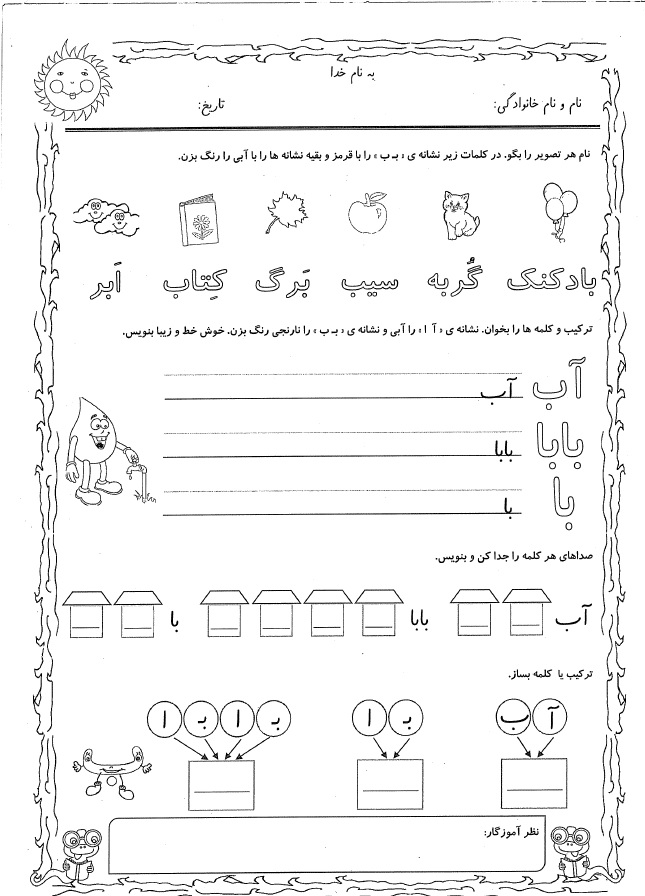 به نام خدا
نام و نام خانوادگی: تاریخ:
نام هر تصویر را بگو. در کلمات زیر نشانه ی « بـ ب » را با قرمز و بقیه نشانه ها را با آبی را رنگ بزن.
بادکنک گُربه سیب بَرگ کِتاب اَبر
ترکیب و کلمه ها را بخوان. نشانه ی « آ ا » را آبی و نشانه ی « بـ ب » را نارنجی رنگ بزن. خوش خط و زیبا بنویس.
آب آب
بابا بابا
با با
صداهای هر کلمه را جدا کن و بنویس.
آب بابا با
ترکیب یا کلمه بساز.
آ ب بـ ا بـ ا بـ ا
نظر آموزگار: